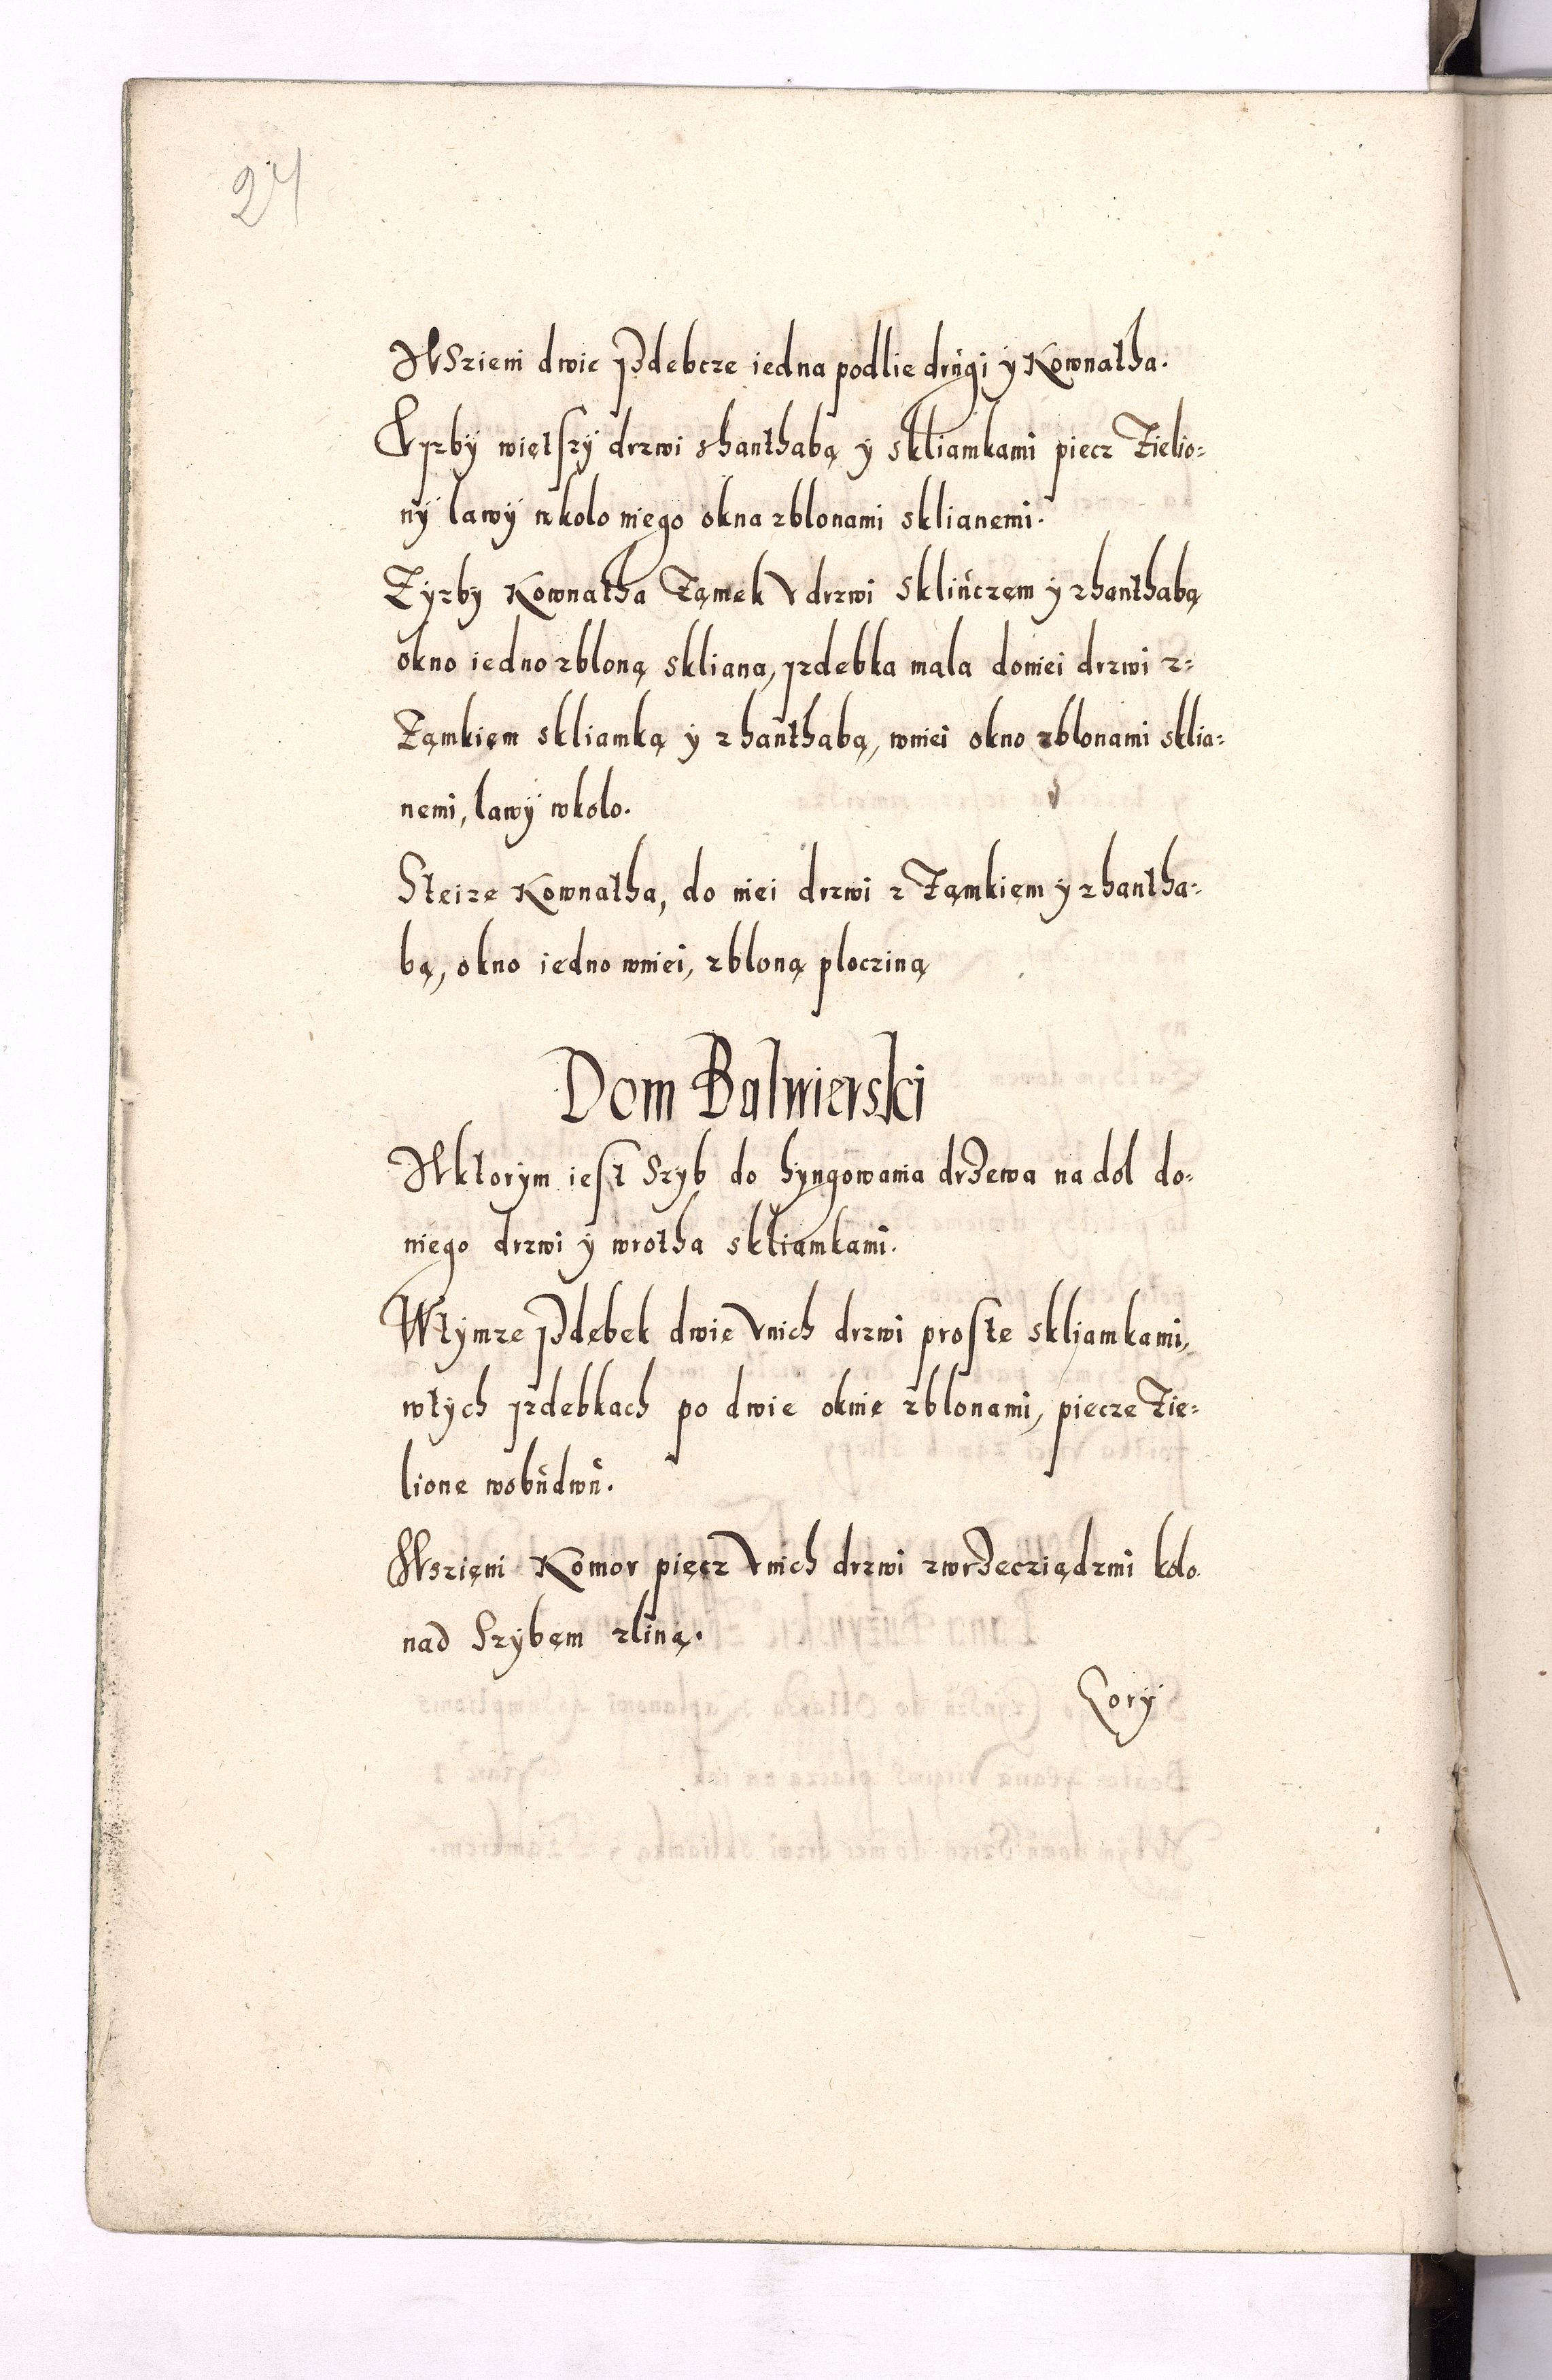 24
Wszieni dwie yzdebcze iedna podlie drugi ÿ Kownatha.
U yzbÿ więtszÿ drzwi shanthabą ÿ skliamkami piecz Zielio=
nÿ lawÿ wkolo niego okna zblonami sklianemi.
Zyzby Kownatha Zamek v drzwi skliuczem ÿ zhanthabą
okno iedno zbloną skliana, yzdebka mala doniei drzwi z=
Zamkięm skliamką ÿ zhanthabą, wniei okno zblonami sklia=
nemi, lawÿ wkolo.
Steize Kownatha, do niei drzwi z Zamkiem ÿ zhantha=
bą, okno iedno wniei, zbloną plocziną
Dom Balwierski
Wktorÿm iest Szyb do hyngowania drzewa na dol do=
niego drzwi ÿ wrotha skliamkami.
Wtÿmze yzdebek dwie vnich drzwi proste skliamkami,
wtÿch yzdebkach po dwie oknie zblonami, piecze Zie=
lione wobudwu.
Wszięni Komor pięcz vnich drzwi zwrzecziądzmi kolo
nad Szÿbem zliną.
Corÿ